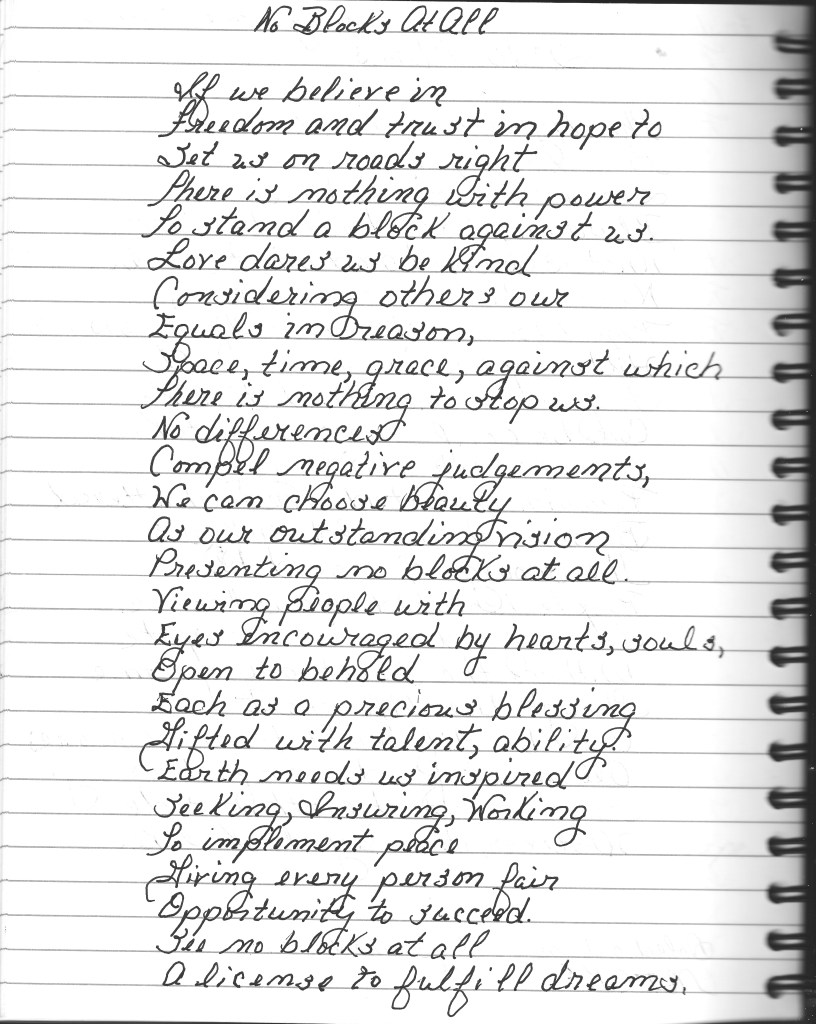 No Blocks At All
If we believe in
Freedom and trust in hope to
Set us on roads right
There is nothing with power
To stand a block against us.
Love dares us be kind
Considering others our
Equals in reason,
Space, time, grace, against which
There is nothing to stop us.
No differences
Compel negative judgements,
We can choose beauty
As our outstanding vision
Presenting no blocks at all.
Viewing people with
Eyes encouraged by hearts, souls,
Open to behold
Each as a precious blessing
Gifted with talent, ability.
Earth needs us inspired
Seeking, Insuring, Working
To implement peace
Giving every person fair
Opportunity to succeed.
See no blocks at all
A license to fulfill dreams.